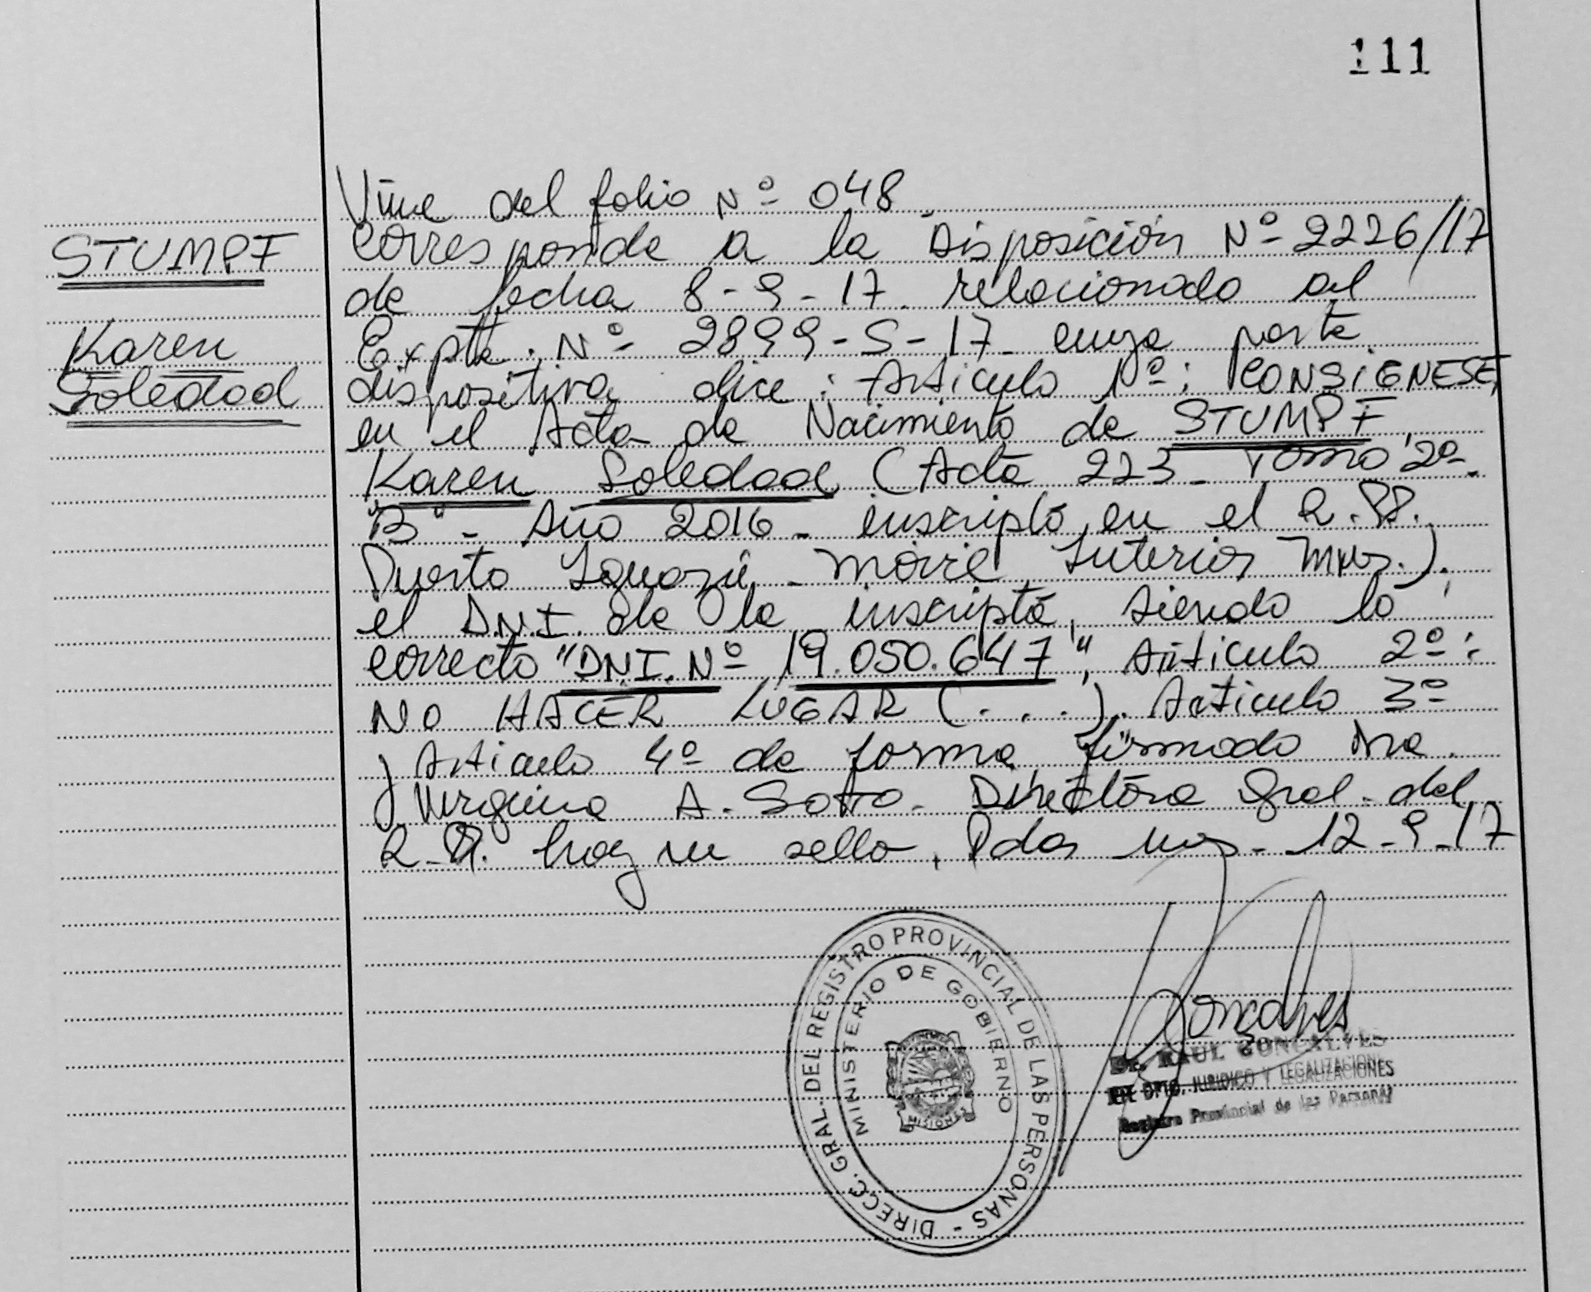 111
STUMPF
Karen
Soledad
Viene del folio Nº 048
corresponde a la Disposición Nº 2226/17
de fecha 8-9-17. relacionado al
Expte. Nº 2899-S-17 cuya parte
dispositiva dice: Artículo 1º: CONSIGNESE,
en el Acta de Nacimiento de STUMPF
Karen Soledad (Acta 223 - Tomo 2º-
"B" - Año 2016 - inscripta en el R.PP.
Puerto Iguazú - Móvil Interior Mnes.).
el D.N.I. de la inscripta, siendo lo
correcto "D.N.I. Nº 19.050.647", Artículo 2º:
NO HACER LUGAR (...). Artículo 3º
y Artículo 4º de forma, firmado Dra.
Virginia A. Sotto. Directora Gral. del
R.P. hay un sello. Pdas Mnes. 12-9-17
DIRECC. GRAL. DEL REGISTRO PROVINCIAL DE LAS PERSONAS -
MINISTERIO DE GOBIERNO
MISIONES
Gonçalves
Dr. RAUL GONCALVES
DPTO. JURIDICO Y LEGALIZACIONES
Registro Provincial de las Personas